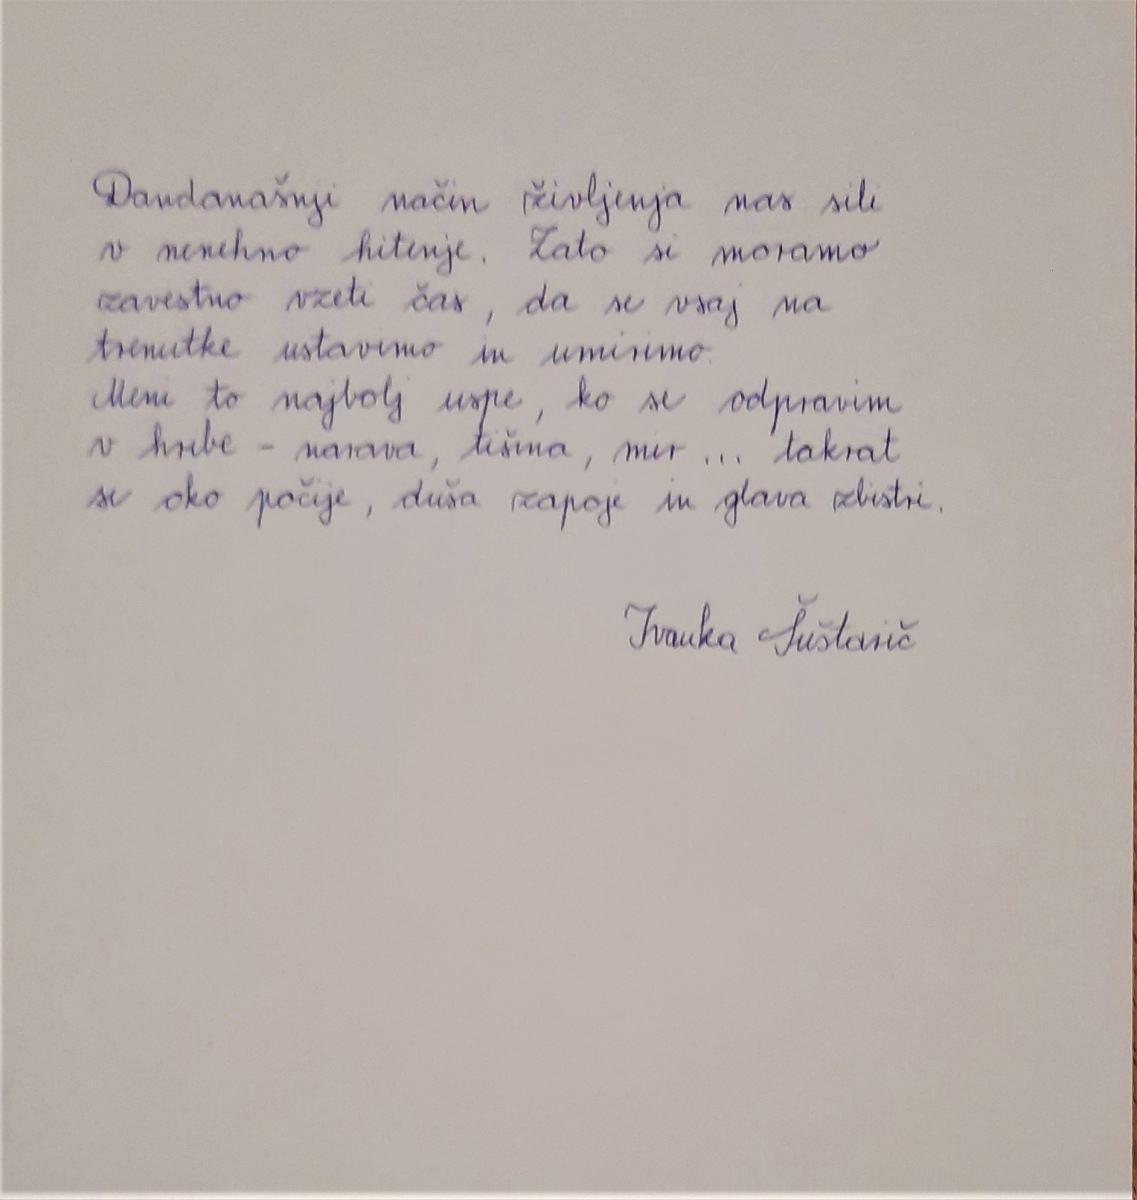 Dandanašnji način življenja nas sili
v nenehno hitenje. Zato si moramo
zavestno vzeti čas, da se vsaj na
trenutke ustavimo in umirimo.
Meni to najbolj uspe, ko se odpravim
v hribe - narava, tišina, mir ... takrat
se oko počije, duša zapoje in glava zbistri.
Ivanka Šuštarič